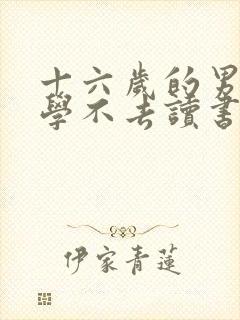 十六歲的男
學不去讀書
伊家青蓮